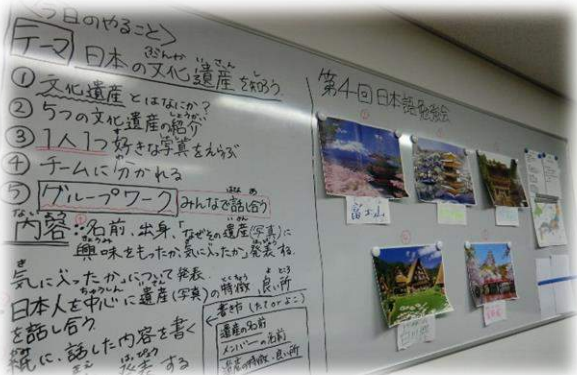 <今日のやること>
テーマ 日本の文化遺産を知ろう
① 文化遺産とはなにか?
② 5つの文化遺産の紹介
③ 1人1つ好きな写真をえらぶ
④ チームに分かれる
⑤ グループワーク みんなで話し合う
内容: ①名前、出身、「なぜその遺産(写真)に
興味をもったか、気に入ったか」発表
気に入ったか、について発表
日本人を中心に遺産(写真)の特徴、良い所
を話し合う
紙に、話した内容を書く
発表する
書き方 (たてorよこ)
遺産の名前
メンバーの名前
遺産の特徴、良い所
第4回日本語勉強会
富士山